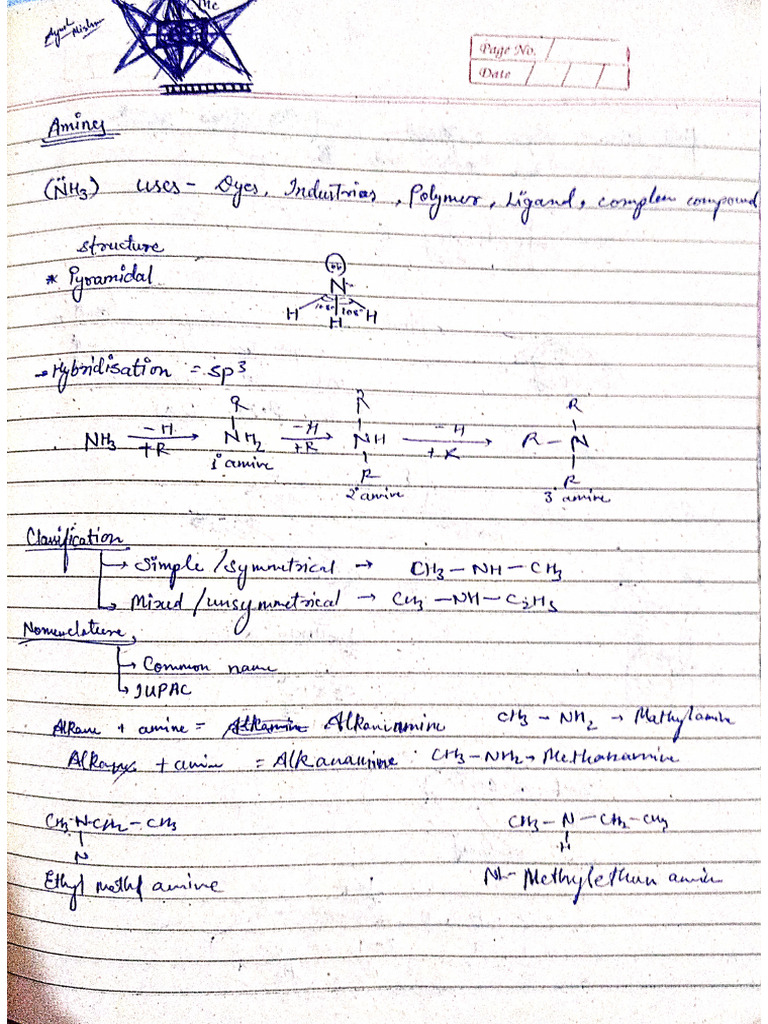 Me
Ayush Mishra
Page No.
Date / / /
Amines
(N̈H3) uses - Dyes, Industries, Polymer, Ligand, complex compound
structure
* Pyramidal
N
H H H
108° 108°
→ Hybridisation = sp³
R R R
NH3 -H +R → NH2 -H +R → NH -H +R → R - N
1° amine R R
2° amine 3° amine
Classification
→ Simple / symmetrical → CH3 - NH - CH3
→ Mixed / unsymmetrical → CH3 - NH - C2H5
Nomenclature,
→ Common name
→ IUPAC
Alkane + amine = Alkanamine CH3 - NH2 → Methylamin
+ amin = Alkanamine CH3 - NH2 → Methanamine
CH3-N-CH2-CH3 CH3 - N - CH2-CH3
N H
Ethyl methyl amine N- Methylethan amin